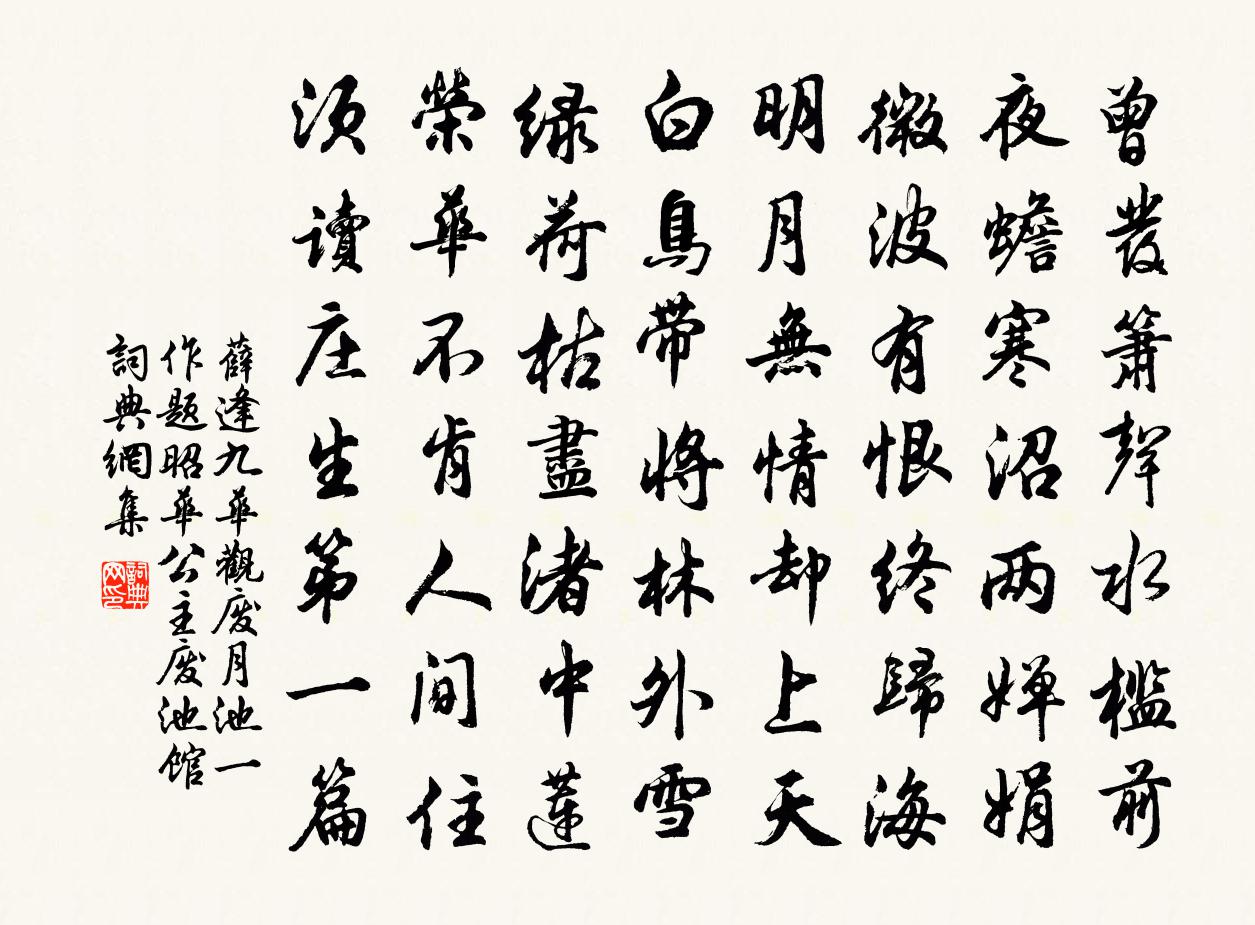 曾發簫聲水檻前
夜蟾寒沼兩嬋娟
微波有恨終歸海
明月無情却上天
白鳥帶將林外雪
綠荷枯盡渚中蓮
榮華不肯人間住
須讀庄生第一篇
薛逢九華觀廢月池一
作題昭華公主廢池館
詞典網集
詞典网印